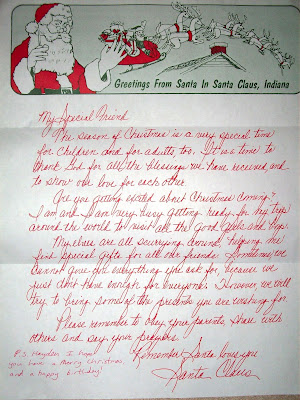 Greetings From Santa In Santa Claus, Indiana
My Special Friend
The season of Christmas is a very special time
for children and for adults, too. It is a time to
thank God for all the blessings we have received and
to show our love for each other.
Are you getting excited about Christmas coming?
I am and I am very busy getting ready for my trip
around the world to visit all the Good Girls and Boys.
My Elves are all scurrying around, helping me
find special gifts for all our friends. Sometimes we
cannot give you everything you ask for, because we
just don't have enough for everyone. However we will
try to bring some of the presents you are wishing for.
Please remember to obey your parents, share with
others and say your prayers.
Remember Santa loves you
Santa Claus
P.S. Hayden I hope
you have a Merry Christmas
and a happy birthday!